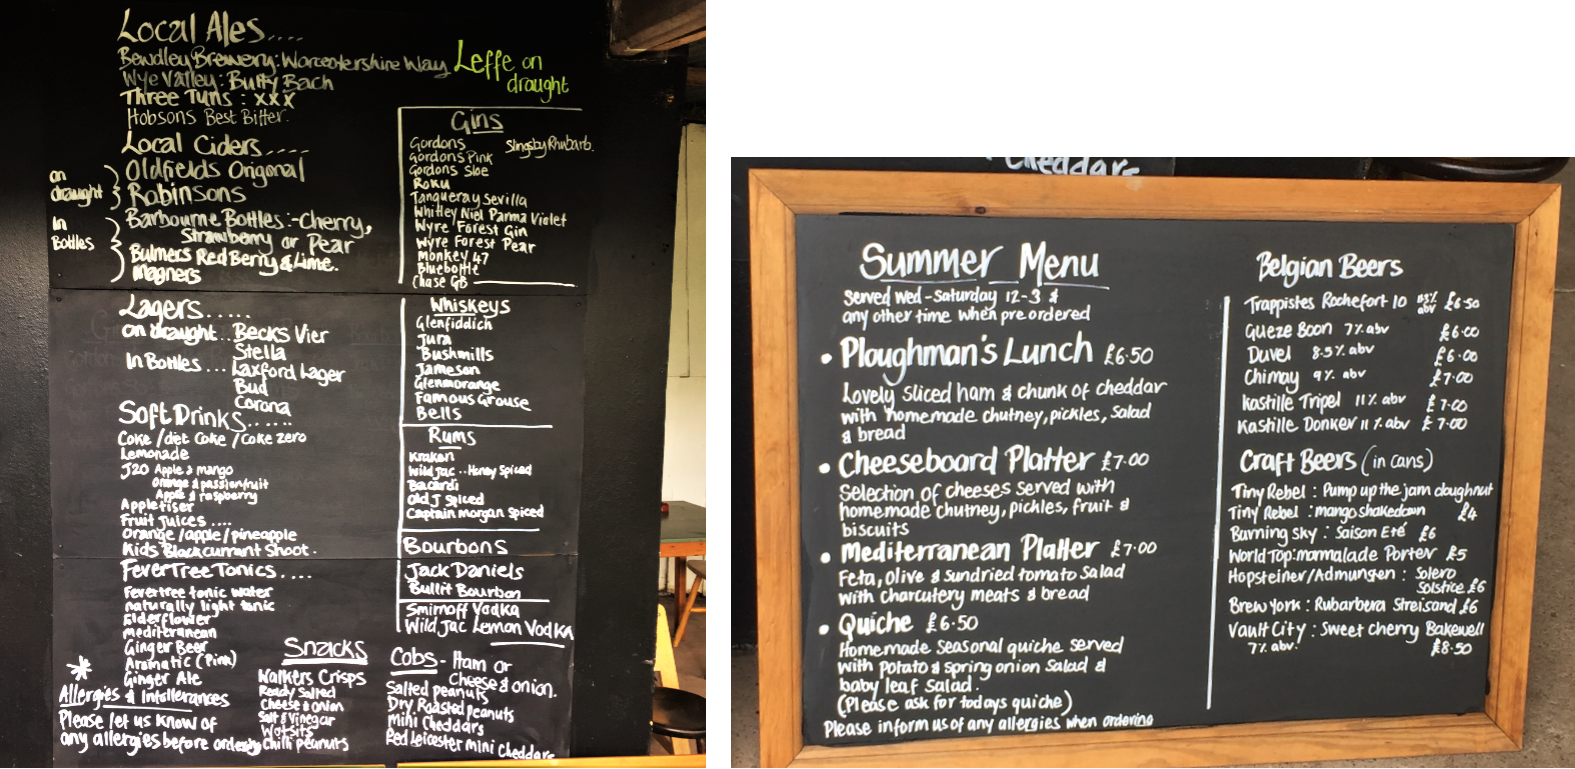 Local Ales....
Bewdley Brewery: Worcestershire Way
Wye Valley: Butty Bach
Three Tuns : XXX
Hobsons Best Bitter.
Leffe on
draught
Local Ciders.....
on
draught
Oldfields Original
Robinsons
In
Bottles
Barbourne Bottles:-Cherry,
Strawberry or Pear
Bulmers Red Berry & Lime.
Magners
Gins
Gordons
Slingsby Rhubarb.
Gordons Pink
Gordons Sloe
Roku
Tanqueray Sevilla
Whitley Niel Parma Violet
Wyre Forest Gin
Wyre Forest Pear
Monkey 47
Bluebottle
Chase GB
Lagers.....
on draught.. Becks Vier
Stella
In Bottles... Laxford Lager
Bud
Corona
Soft Drinks......
Coke / diet Coke / Coke zero
Lemonade
J20 Apple & mango
Orange & passionfruit
Apple & raspberry
Appletiser
Fruit Juices ....
Orange/apple/pineapple
Kids Blackcurrant Shoot.
Whiskeys
Glenfiddich
Jura
Bushmills
Jameson
Glenmorange
Famous Grouse
Bells
Rums
Kraken
Wild Jac .. Honey Spiced
Bacardi
Old J Spiced
Captain morgan Spiced
Bourbons
Jack Daniels
Bullit Bourbon
Smirnoff Vodka
Wild Jac Lemon Vodka
FeverTree Tonics....
Fevertree tonic water
naturally light tonic
Elderflower
mediterranean
Ginger Beer
Aromatic (Pink)
Ginger Ale
* Allergies & Intollerances
Please let us know of
any allergies before ordering
Snacks
Walkers Crisps
Ready Salted
Cheese & onion
Salt & Vinegar
Wotsits
Chilli peanuts
Cobs - Ham or
Cheese & onion.
Salted peanuts
Dry Roasted peanuts
Mini Cheddars
Red Leicester mini Cheddars
Cheddars
Summer Menu
Served Wed-Saturday 12-3 &
any other time when preordered
• Ploughman's Lunch £6.50
Lovely sliced ham & chunk of cheddar
with homemade chutney, pickles, salad
& bread
• Cheeseboard Platter £7.00
Selection of cheeses served with
homemade chutney, pickles, fruit &
biscuits
• Mediterranean Platter £7.00
Feta, olive & sundried tomato Salad
with charcutery meats & bread
• Quiche £6.50
Homemade seasonal quiche served
with potato & spring onion Salad &
baby leaf Salad.
(Please ask for todays quiche)
Please inform us of any allergies when ordering
Belgian Beers
Trappistes Rochefort 10 abv £6.50
Gueze Boon 7% abv £6.00
Duvel 8.5% abv £6.00
Chimay 9% abv £7.00
Kastille Tripel 11% abv £7.00
Kastille Donker 11% abv £7.00
Craft Beers (in cans)
Tiny Rebel : Pump up the jam doughnut
Tiny Rebel : mango shakedown £4
Burning Sky : Saison Eté £6
World Top: marmalade Porter £5
Hopsteiner/Admungen : Solero
Solstice £6
Brew York : Rubarbera Streisand £6
Vault City : Sweet Cherry Bakewell
7% abv. £8.50